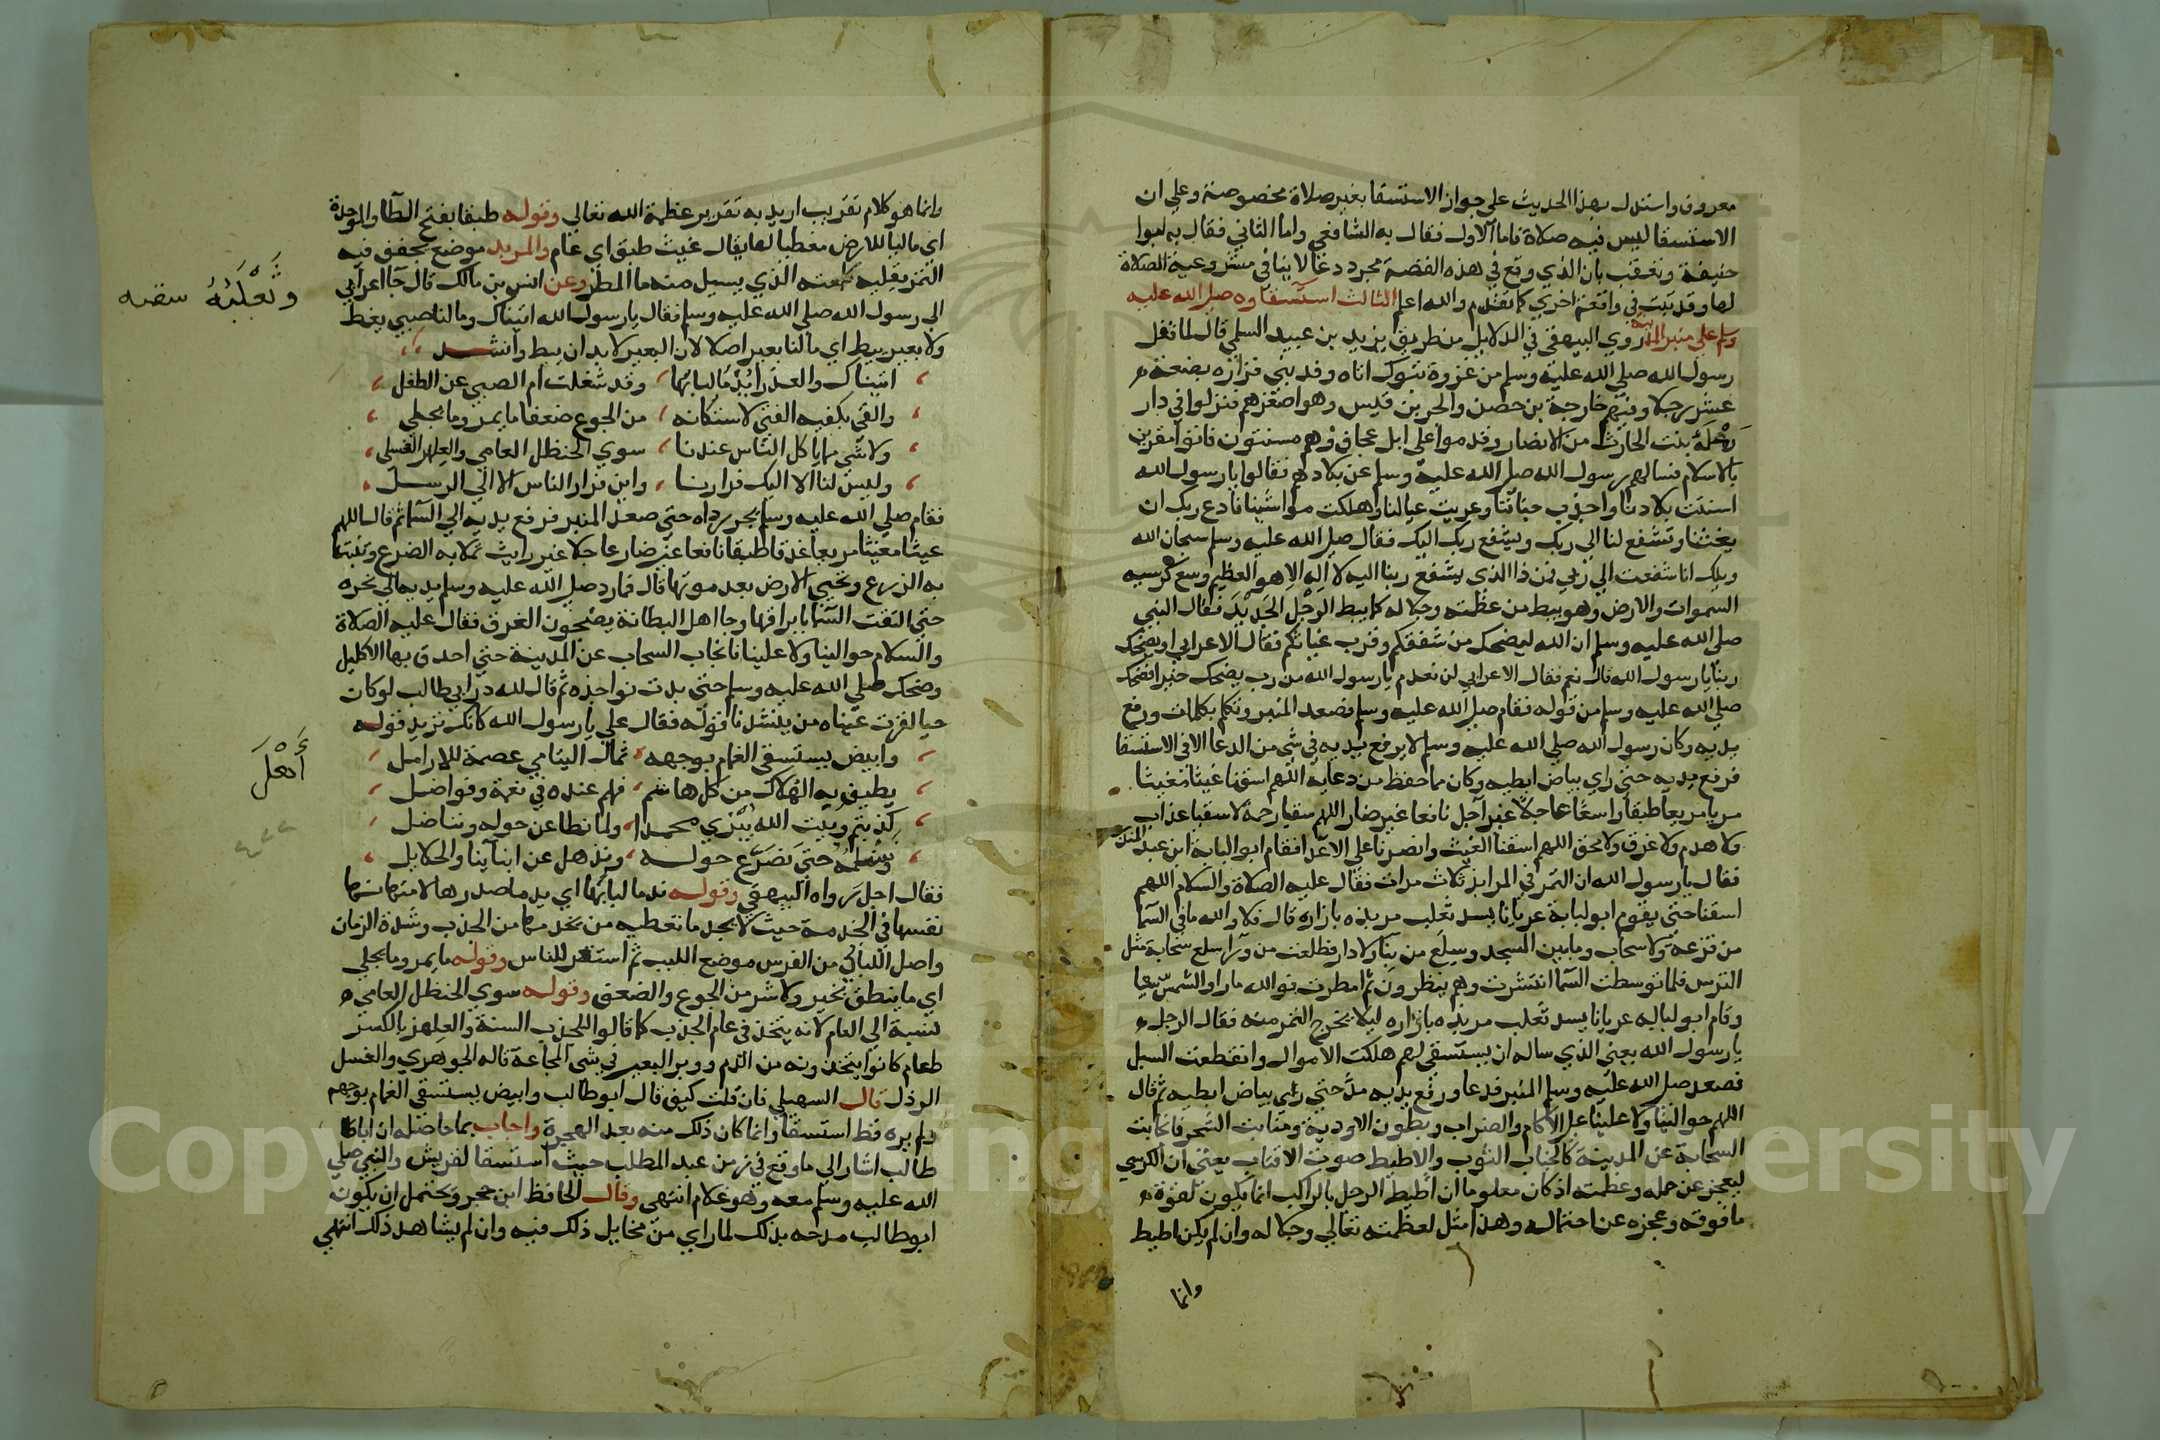 معروف واستدل بهذا الحديث علي جواز الاستسقا بغير صلاة مخصوصة وعلي ان
الاستسقا ليس فيه صلاة فاما الاول فقال به الشافعي واما الثاني فقال به ابوا
حنيفة وتعقب بان الذي وقع في هذه القصة مجرد دعا لا ينافي مشروعية الصلاة
لها وقد بينت في واقعة اخري كما تقدم والله اعلم الثالث استسقاوه صلي الله عليه
وسلم علي منبر المدينة روي البيهقي في الدلايل من طريق يزيد بن عبيد السلمي قال لما قفل
رسول الله صلي الله عليه وسلم من غزوة تبوك اتاه وفد بني فزارة بضعة
عشر رجلا وفيهم خارجة بن حصن والحر بن قيس وهو اصغرهم فنزلوا في دار
رملة بنت الحارث من الانصار وقدموا علي ابل عجاف وهم مسنتون فاتوا مقرين
بالاسلام فسالهم رسول الله صلي الله عليه وسلم عن بلادهم فقالوا يا رسول الله
اسنتت بلادنا واجدب جنابنا وعريت عيالنا وهلكت مواشينا فادع ربك ان
يغثنا وتشفع لنا الي ربك ويشفع ربك اليك فقال صلي الله عليه وسلم سبحان الله
ويلك انا شفعت الي ربي فمن ذا الذي يشفع ربنا اليه لا اله الا هو العظيم وسع كرسيه
السموات والارض وهو يئط من عظمته وجلاله كما يئط الرحل الجديد فقال النبي
صلي الله عليه وسلم ان الله ليضحك من شفقكم وقرب غياثكم فقال الاعرابي او يضحك
ربنا يا رسول الله قال نعم فقال الاعرابي لن نعدم يا رسول الله من رب يضحك خيرا فضحك
صلي الله عليه وسلم من قوله فقام صلي الله عليه وسلم فصعد المنبر وتكلم بكلمات ورفع
يديه وكان رسول الله صلي الله عليه وسلم لا يرفع يديه في شي من الدعا الا في الاستسقا
فرفع يديه حتي راي بياض ابطيه وكان مما حفظ من دعايه اللهم اسقنا غيثا مغيثا
مريا مريعا طبقا واسعا عاجلا غير آجل نافعا غير ضار اللهم سقيا رحمة لا سقيا عذاب
ولا هدم ولا غرق ولا محق اللهم اسقنا الغيث وانصرنا علي الاعدا فقام ابو لبابة ابن عبد المنذر
فقال يا رسول الله ان التمر في المرابد ثلاث مرات فقال عليه الصلاة والسلام اللهم
اسقنا حتي يقوم ابو لبابة عريانا يسد ثعلب مربده بازاره قال فلا والله ما في السما
من قزعة ولا سحاب وما بين المسجد وسلع من بنا ولا دار فطلعت من ورآ سلع سحابة مثل
الترس فلما توسطت السما انتشرت وهم ينظرون ثم امطرت فوالله ما راوا الشمس سبعا
وقام ابو لبابه عريانا يسد ثعلب مربده بازاره ليلا يخرج التمر منه فقال الرجل
يا رسول الله يعني الذي ساله ان يستسقي لهم هلكت الاموال وانقطعت السبل
فصعد صلي الله عليه وسلم المنبر فدعا ورفع يديه مدا حتي رئي بياض ابطيه ثم قال
اللهم حوالينا ولا علينا علي الآكام والضراب وبطون الاودية ومنابت الشجر فانجابت
السحابة عن المدينة كانجياب الثوب والاطيط صوت الاقتاب يعني ان الكرسي
ليعجز عن حمله وعظمته اذ كان معلوما ان اطيط الرحل بالراكب انما يكون لقوة
ما فوقه وعجزه عن احتماله وهذا مثل لعظمته تعالي وجلاله وان لم يكن اطيط
وانما
وانما هو كلام تقريب اريد به تقرير عظمة الله تعالي وقوله طبقا بفتح الطآ والموحدة
اي ماليا للارض مغطيا لها يقال غيث طبق اي عام والمربد موضع يجفف فيه
التمر وثعلبه ثقبه الذي يسيل منه ما المطر وعن انس بن مالك قال جا اعرابي
الي رسول الله صلي الله عليه وسلم فقال يا رسول الله اتيناك وما لنا صبي يغط
ولا بعير يئط اي ما لنا بعير اصلا لان البعير لا بد ان يئط وانشد
اتيناك والعذرا يدما لبانها وقد شغلت ام الصبي عن الطفل
والقي بكفيه الفتي لاستكانه من الجوع ضعفا ما يمر وما يحلي
ولا شي مما ياكل الناس عندنا سوي الحنظل العامي والعلهز الفسل
وليس لنا الا اليك فرارنا واين فرار الناس الا الي الرسل
فقام صلي الله عليه وسلم يجر رداه حتي صعد المنبر فرفع يديه الي السما ثم قال اللهم
غيثا مغيثا مريعا غدقا طبقا نافعا غير ضار عاجلا غير رايث تملا به الضرع وتنبت
به الزرع وتحيي الارض بعد موتها قال فما رد صلي الله عليه وسلم يديه الي نحره
حتي التقت السما بابراقها وجا اهل البطانة يضجون الغرق فقال عليه الصلاة
والسلام حوالينا ولا علينا فانجاب السحاب عن المدينة حتي احدق بها الاكليل
وضحك صلي الله عليه وسلم حتي بدت نواجذه ثم قال لله در ابي طالب لو كان
حيا لقرت عيناه من ينشدنا قوله فقال علي يا رسول الله كانك تريد قوله
وابيض يستسقي الغمام بوجهه ثمال اليتامي عصمة للارامل
يطيف به الهلاك من كل هاشم فهم عنده في نعمة وفواضل
كذبتم وبيت الله يبزي محمد ولما نطاعن حوله ونناضل
ونسلمه حتي نصرع حوله ونذهل عن ابنآينا والحلايل
فقال اجل رواه البيهقي وقوله يدما لبانها اي يدما صدرها لامتهانها
نفسها في الخدمة حيث لا تجد ما تعطيه من يخدمها من الجدب وشدة الزمان
واصل اللبان من الفرس موضع اللبب ثم استعير للناس وقوله ما يمر وما يحلي
اي ما ينطق بخير ولا شر من الجوع والضعف وقوله سوي الحنظل العامي
نسبة الي العام لانه يتخذ في عام الجدب كما قالوا للجدب السنة والعلهز بالكسر
طعام كانوا يتخذونه من الدم ووبر البعير في سني المجاعة قاله الجوهري والفسل
الرذل قال السهيلي فان قلت كيف قال ابو طالب وابيض يستسقي الغمام بوجهه
ولم يره قط استسقا وانما كان ذلك منه بعد الهجرة واجاب بما حاصله ان ابا
طالب اشار الي ما وقع في زمن عبد المطلب حيث استسقا لقريش والنبي صلي
الله عليه وسلم معه وهو غلام انتهي وقال الحافظ ابن حجر ويحتمل ان يكون
ابو طالب مدحه بذلك لما راي من مخايل ذلك فيه وان لم يشاهد ذلك انتهي
وثعلبه ثقبه
أهل